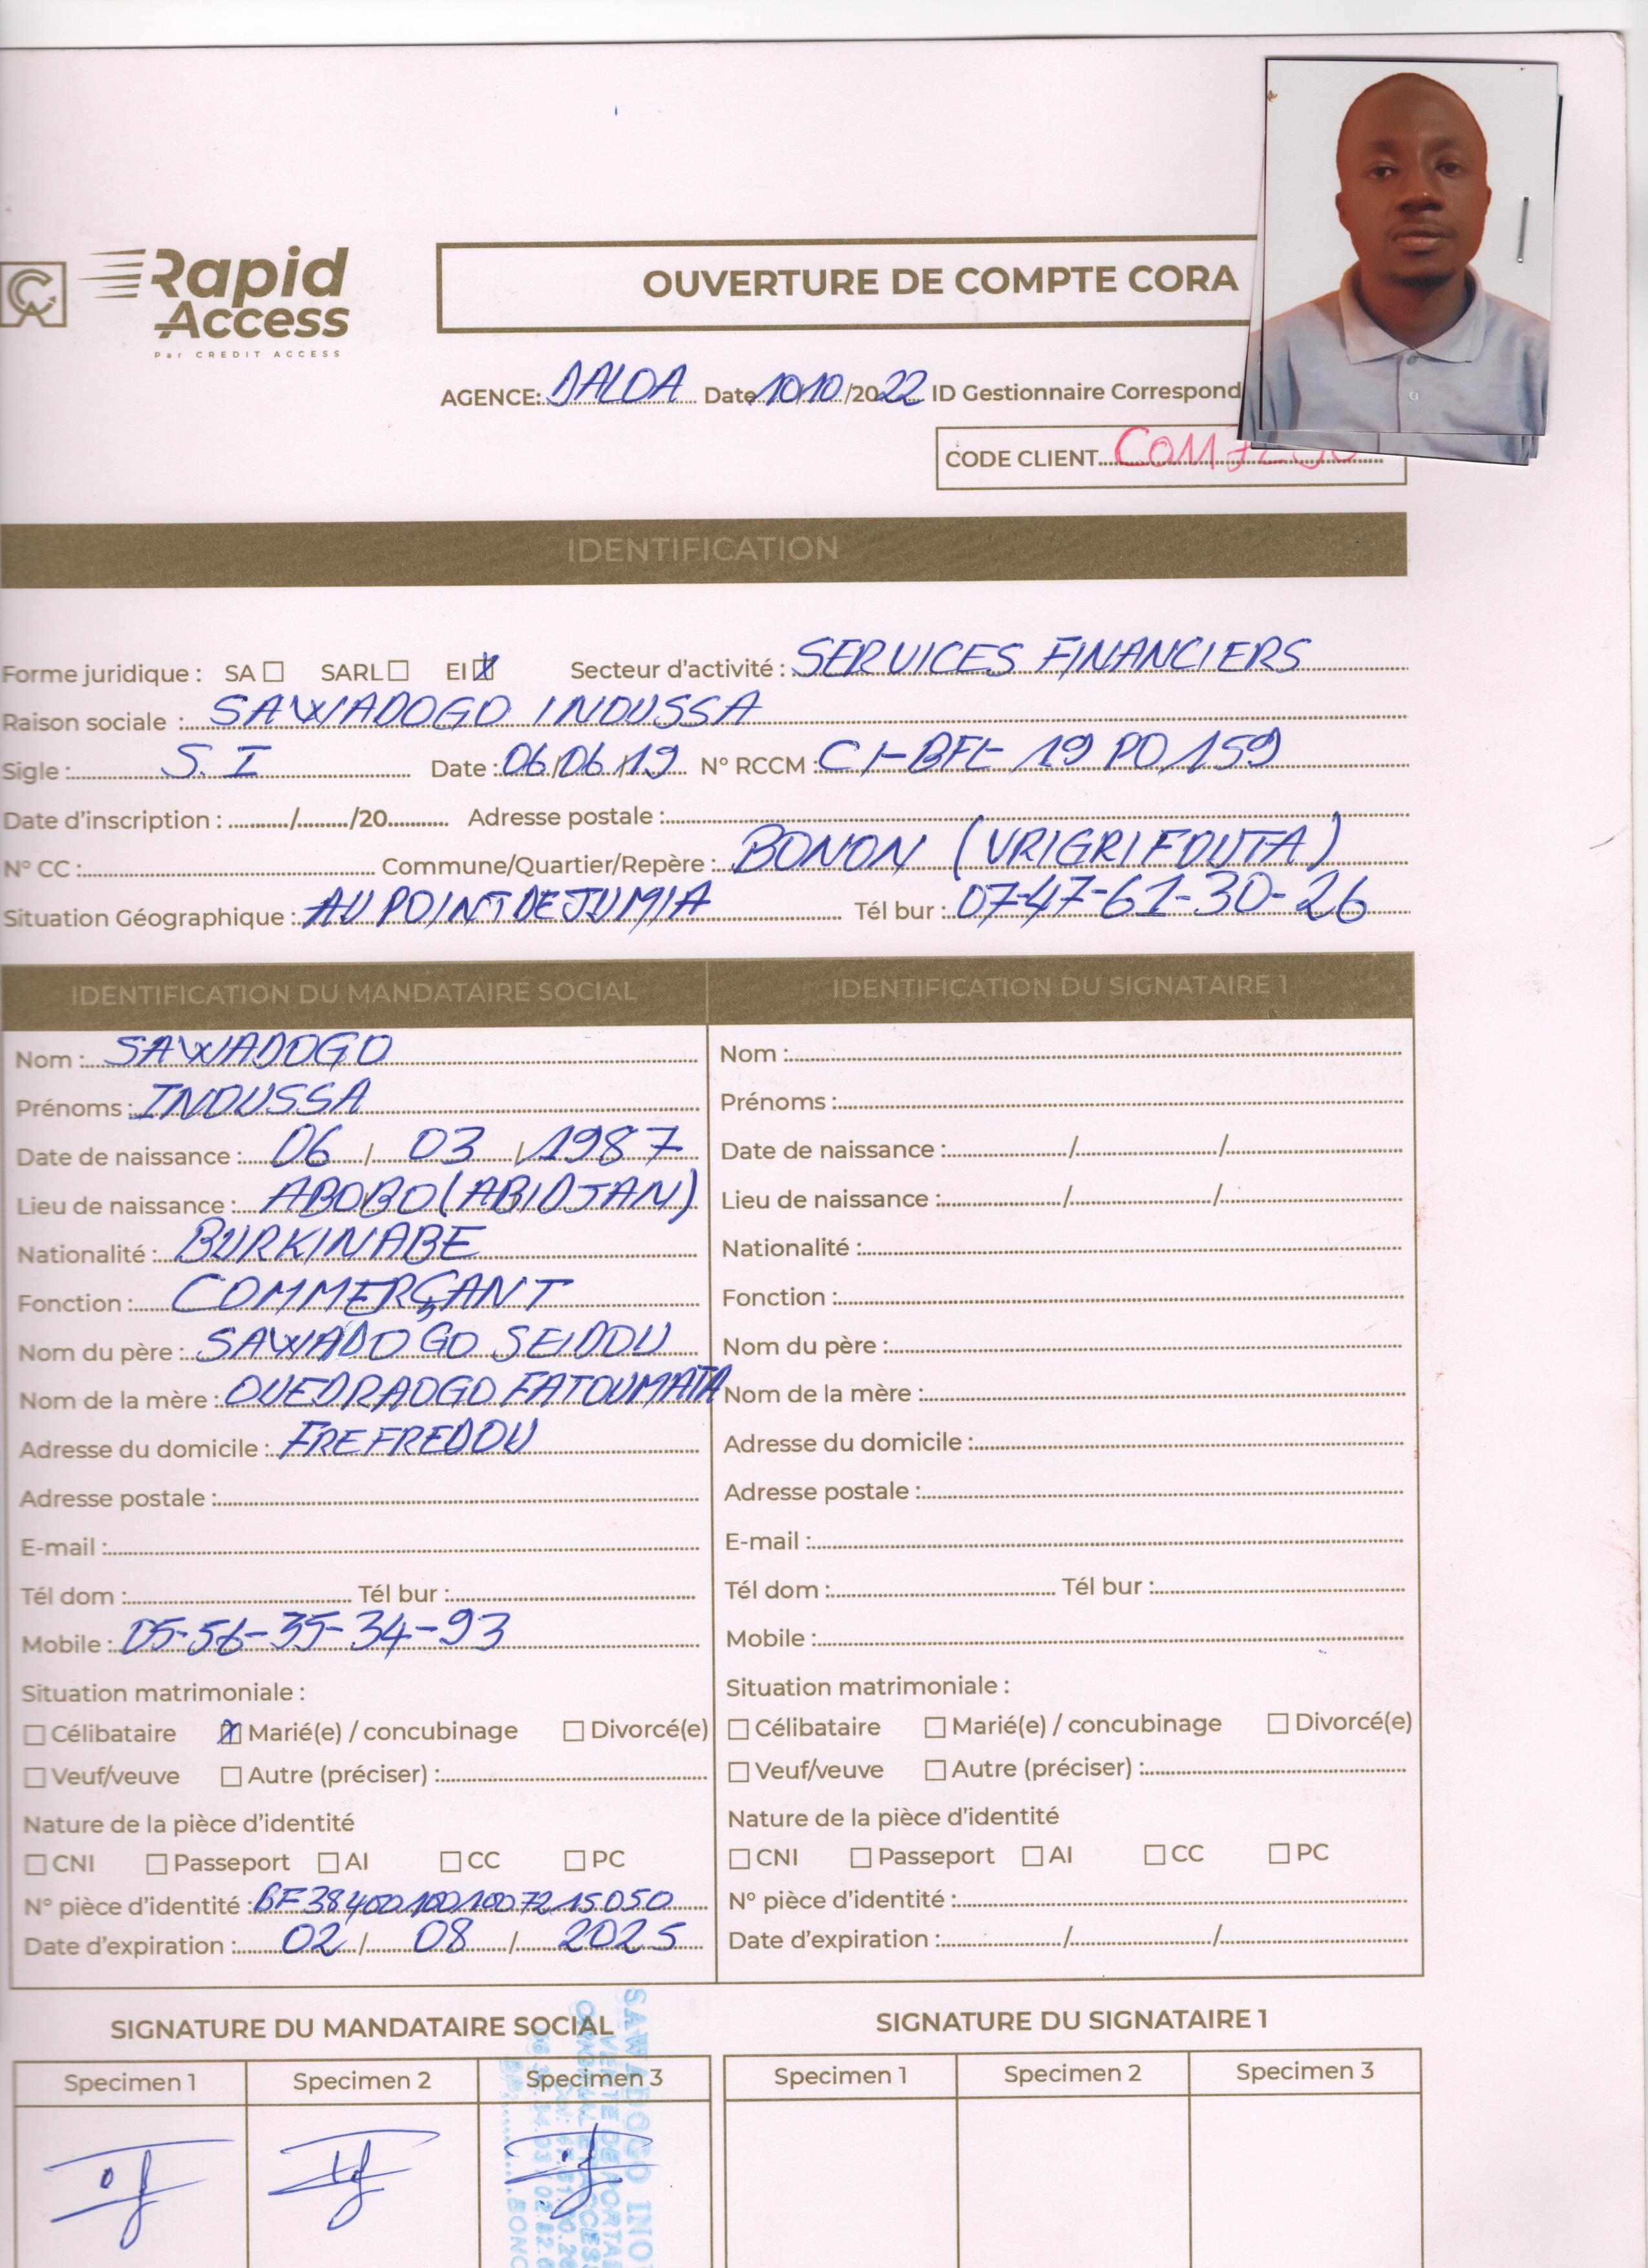 Rapid
Access
Par CREDIT ACCESS
OUVERTURE DE COMPTE CORA
AGENCE: DALOA Date 10/10/2022 ID Gestionnaire Correspond
CODE CLIENT
IDENTIFICATION
Forme juridique : SA ☐ SARL ☐ EI ☒ Secteur d'activité : SERVICES FINANCIERS
Raison sociale : SAWADOGO INOUSSA
Sigle : S. I Date : 06/06/19 N° RCCM : CI-BFL 19 PO 159
Date d'inscription : ........../........./20........... Adresse postale :
N° CC : Commune/Quartier/Repère : BONON (VRIGRIFOUTA)
Situation Géographique : AU POINT DE JUMIA Tél bur : 07-47-61-30-26
IDENTIFICATION DU MANDATAIRE SOCIAL
Nom : SAWADOGO
Prénoms : INOUSSA
Date de naissance : 06 / 03 / 1987
Lieu de naissance : ABOBO (ABIDJAN)
Nationalité : BURKINABE
Fonction : COMMERÇANT
Nom du père : SAWADOGO SEIDOU
Nom de la mère : OUEDRAOGO FATOUMATA
Adresse du domicile : FREFREDOU
Adresse postale :
E-mail :
Tél dom : Tél bur :
Mobile : 05-56-35-34-93
Situation matrimoniale :
☐ Célibataire ☒ Marié(e) / concubinage ☐ Divorcé(e)
☐ Veuf/veuve ☐ Autre (préciser) :
Nature de la pièce d'identité
☐ CNI ☐ Passeport ☐ AI ☐ CC ☐ PC
N° pièce d'identité : BF384001001007215050
Date d'expiration : 02 / 08 / 2025
IDENTIFICATION DU SIGNATAIRE 1
Nom :
Prénoms :
Date de naissance : / /
Lieu de naissance : / /
Nationalité :
Fonction :
Nom du père :
Nom de la mère :
Adresse du domicile :
Adresse postale :
E-mail :
Tél dom : Tél bur :
Mobile :
Situation matrimoniale :
☐ Célibataire ☐ Marié(e) / concubinage ☐ Divorcé(e)
☐ Veuf/veuve ☐ Autre (préciser) :
Nature de la pièce d'identité
☐ CNI ☐ Passeport ☐ AI ☐ CC ☐ PC
N° pièce d'identité :
Date d'expiration : / /
SIGNATURE DU MANDATAIRE SOCIAL
Specimen 1 Specimen 2 Specimen 3
SAWADOGO
SIGNATURE DU SIGNATAIRE 1
Specimen 1 Specimen 2 Specimen 3